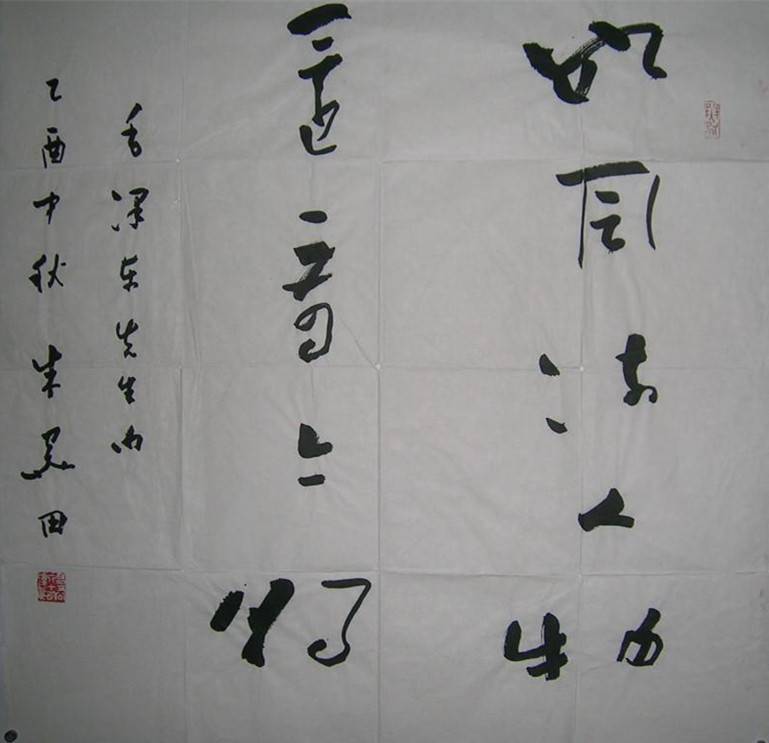 数风流人物
還看今朝
毛泽东先生句
乙酉中秋 朱关田